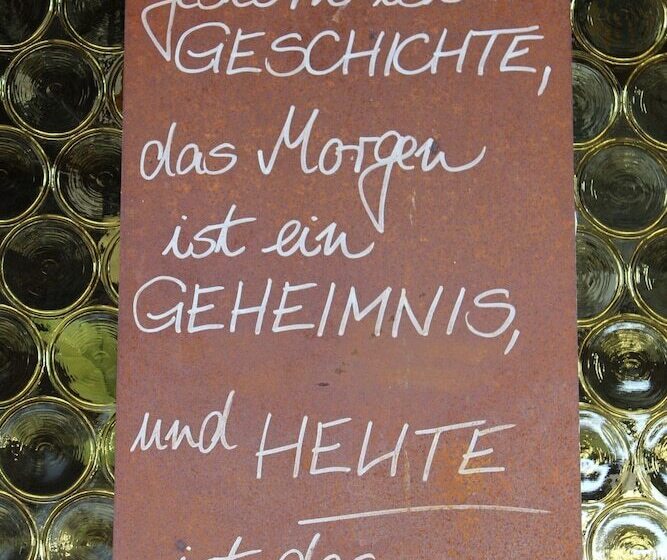 GESCHICHTE,
das Morgen
ist ein
GEHEIMNIS,
und HEUTE
ist das